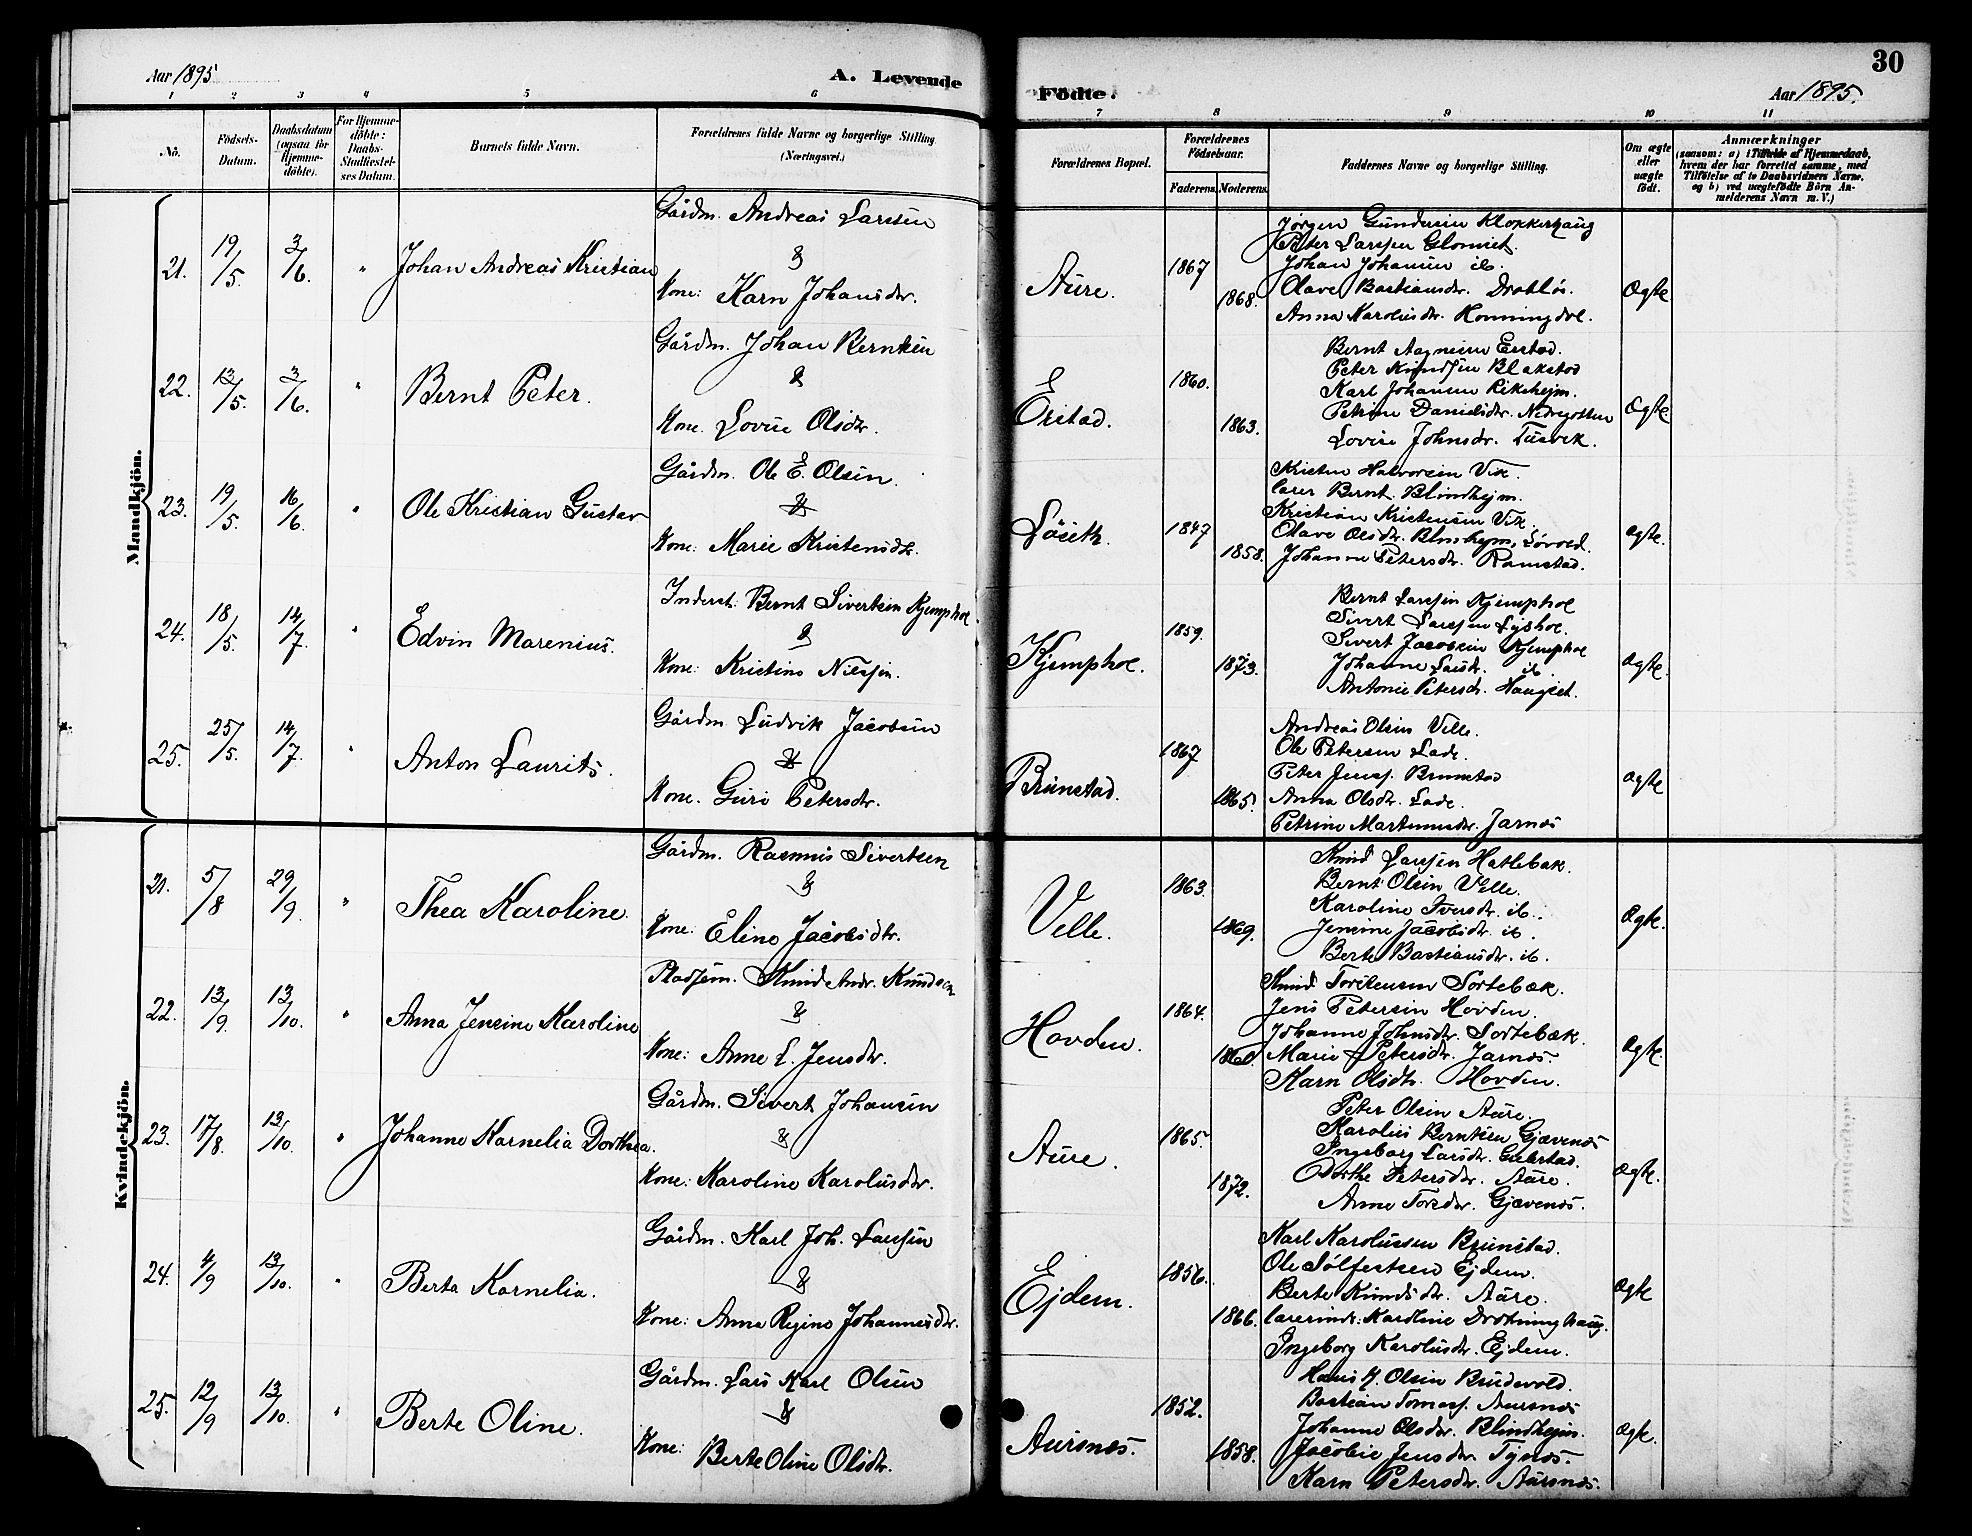 Aar 1895
A. Levende
Fødte.
Aar 1895.
30
1 2 3 4 5 6 7 8 9 10 11
No.
Fødsels-Datum.
Daabsdatum (ogsaa for Hjemme-døbte).
For Hjemme-døbte: Daabs-Stadfæstel-ses Datum.
Barnets fulde Navn.
Forældrenes fulde Navne og borgerlige Stilling (Næringsvei.)
Forældrenes Bopæl.
Forældrenes Fødselsaar.
Faderens. Moderens.
Faddernes Navne og borgerlige Stilling.
Om ægte eller uægte født.
Anmærkninger
(saasom: a) i Tilfælde af Hjemmedaab,
hvem der har forrettet samme, med
Tilføielse af to Daabsvidners Navne,
og b) ved uægtefødte Børn An-
melderens Navn m. V.)
Mandkjön.
21. 19/5. 3/6. " Johan Andreas Kristian
Gårdm. Andreas Larssen
&
Kone: Karn Johansdtr.
Aure. 1867 1868.
Jørgen Gundersen Klokkerhaug
Peter Larssen Glomset.
Johan Johansen ib.
Olave Bastiansdr. Drabløs.
Anna Karolusdr. Honningdal.
Ægte
22. 13/5. 3/6. " Bernt Peter.
Gårdm. Johan Berntsen
&
Kone. Lovise Olsdtr.
Erstad. 1860. 1863.
Bernt Aagnesen Erstad.
Peter Knudsen Blakstad
Karl Johansen Rikshejm.
Petrine Danielsdr. Nedregotten
Lovise Johnsdr. Tusvik.
Ægte
23. 19/5. 16/6. " Ole Kristian Gustav
Gårdm. Ole E. Olsen.
&
Kone: Marie Kristensdtr.
Løseth. 1847 1858.
Kristen Halvorsen Vik.
Lærer Bernt Blindhejm.
Kristian Kristensen Vik.
Olave Olsdtr. Løvold.
Johanne Petersdr. Ramstad.
Ægte.
24. 18/5. 14/7. " Edvin Marenius.
Inderst: Bernt Sivertsen Kjemphol.
&
Kone: Kristine Nilssen.
Kjemphol. 1859. 1873.
Bernt Larssen Kjemphol
Sivert Larssen Lyshol.
Sivert Jacobsen Kjemphol
Johanne Larsdr. ib.
Antonie Petersdr. Haugset.
Ægte.
25. 25/5. 14/7. " Anton Laurits.
Gårdm Ludvik Jacobsen
&
Kone. Guri Petersdtr.
Brunstad. 1867 1865.
Andreas Olsen Velle.
Ole Petersen Lade.
Peter Jenss. Brunstad
Anna Olsdtr. Lade.
Petrine Martinusdr. Jarnes
Ægte
Kvindekjön.
21. 5/8 29/9. " Thea Karoline.
Gårdm. Rasmus Sivertsen
&
Kone: Eline Jacobsdtr.
Velle. 1863. 1869.
Knud Larssen Hatlebak.
Bernt Olsen Velle.
Karoline Iversdr. ib.
Jensine Jacobsdr. ib.
Berte Bastiansdr. ib.
Ægte.
22. 13/9. 13/10. " Anna Jensine Karoline
Pladsem. Knud Andr. Knudsen
&
Kone: Anne L. Jensdtr.
Hovden. 1864. 1860.
Knud Torstensen Sortebæk.
Jens Petersen Hovden.
Johanne Johnsdr. Sortebæk.
Marie Petersdr. Jarnes.
Karn Olsdtr. Hovden.
Ægte.
23. 17/8. 13/10. " Johanne Kornelia Dorthea.
Gårdm. Sivert Johansen
&
Kone: Karoline Karolusdtr.
Aure. 1865. 1872.
Peter Olsen Aure.
Karolius Berntsen Gjævenes
Ingeborg Larsdr. Gulstad.
Dorthe Petersdtr. Aure.
Anne Toresdr. Gjævenes.
Ægte.
24. 4/9 13/10. " Berta Kornelia.
Gårdm. Karl Joh. Larssen
&
Kone: Anna Regine Johannesdtr.
Ejdem. 1856. 1866.
Karl Karolussen Brunstad.
Ole Sølfestsen Ejdem.
Berte Knudsdtr. Aure.
Lærerinde: Karoline Drotninghaug.
Ingeborg Karolusdr. Ejdem.
Ægte
25. 12/9 13/10. " Berte Oline.
Gårdm. Lars Karl Olsen
&
Kone: Berte Oline Olsdtr.
Aursnes. 1852. 1858.
Hans J. Olsen Brudevold.
Bastian Tomass. Aursnes
Johanne Olsdtr. Blindhejm.
Jacobie Jensdtr. Tynes.
Karn Petersdtr. Aursnes.
Ægte.